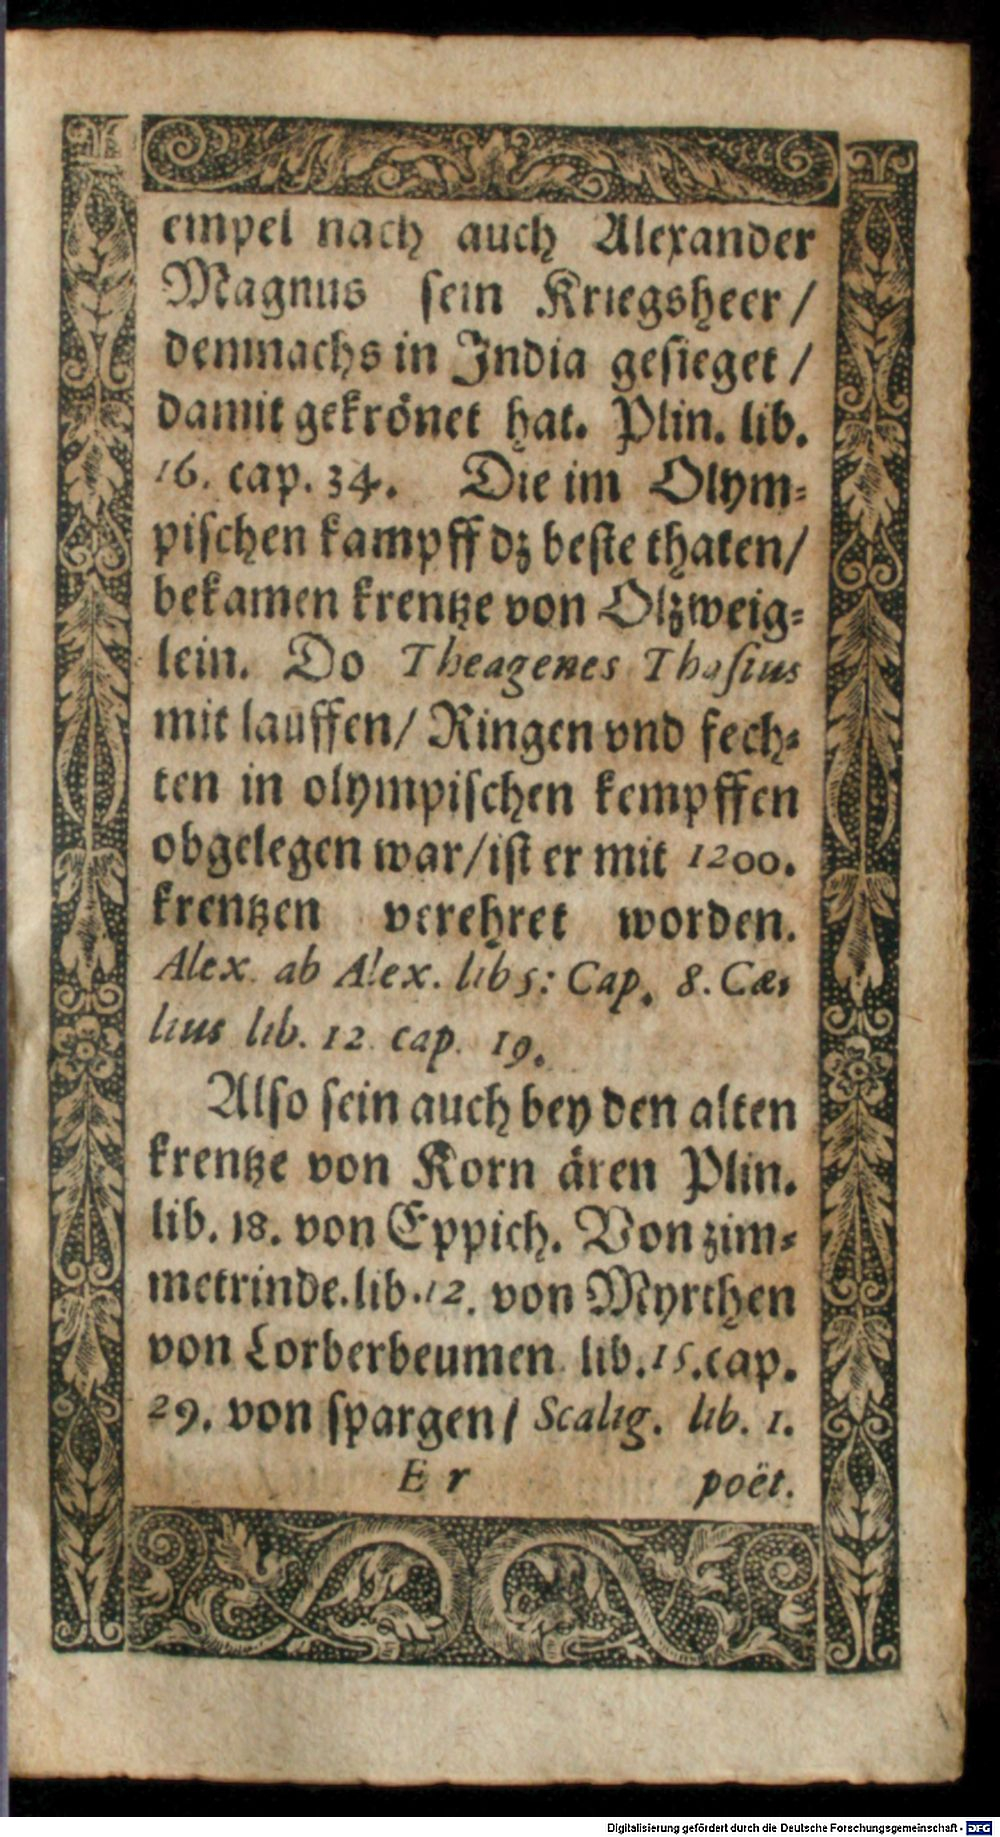 empel nach auch Alexander
Magnus sein Kriegsheer/
demnachs in India gesieget/
damit gekrönet hat. Plin. lib.
16. cap. 34. Die im Olym⸗
pischen kampff dz beste thaten/
bekamen krentze von Olzweig⸗
lein. Do Theagenes Thasius
mit lauffen/ Ringen vnd fech⸗
ten in olympischen kempffen
obgelegen war/ist er mit 1200.
krentzen verehret worden.
Alex. ab Alex. lib 5: Cap. 8. Cæ⸗
lius lib. 12. cap. 19.
Also sein auch bey den alten
krentze von Korn ären Plin.
lib. 18. von Eppich. Von zim⸗
metrinde. lib. 12. von Myrthen
von Lorberbeumen lib. 15. cap.
29. von spargen/ Scalig. lib. 1.
E r poët.
Digitalisierung gefördert durch die Deutsche Forschungsgemeinschaft - DFG